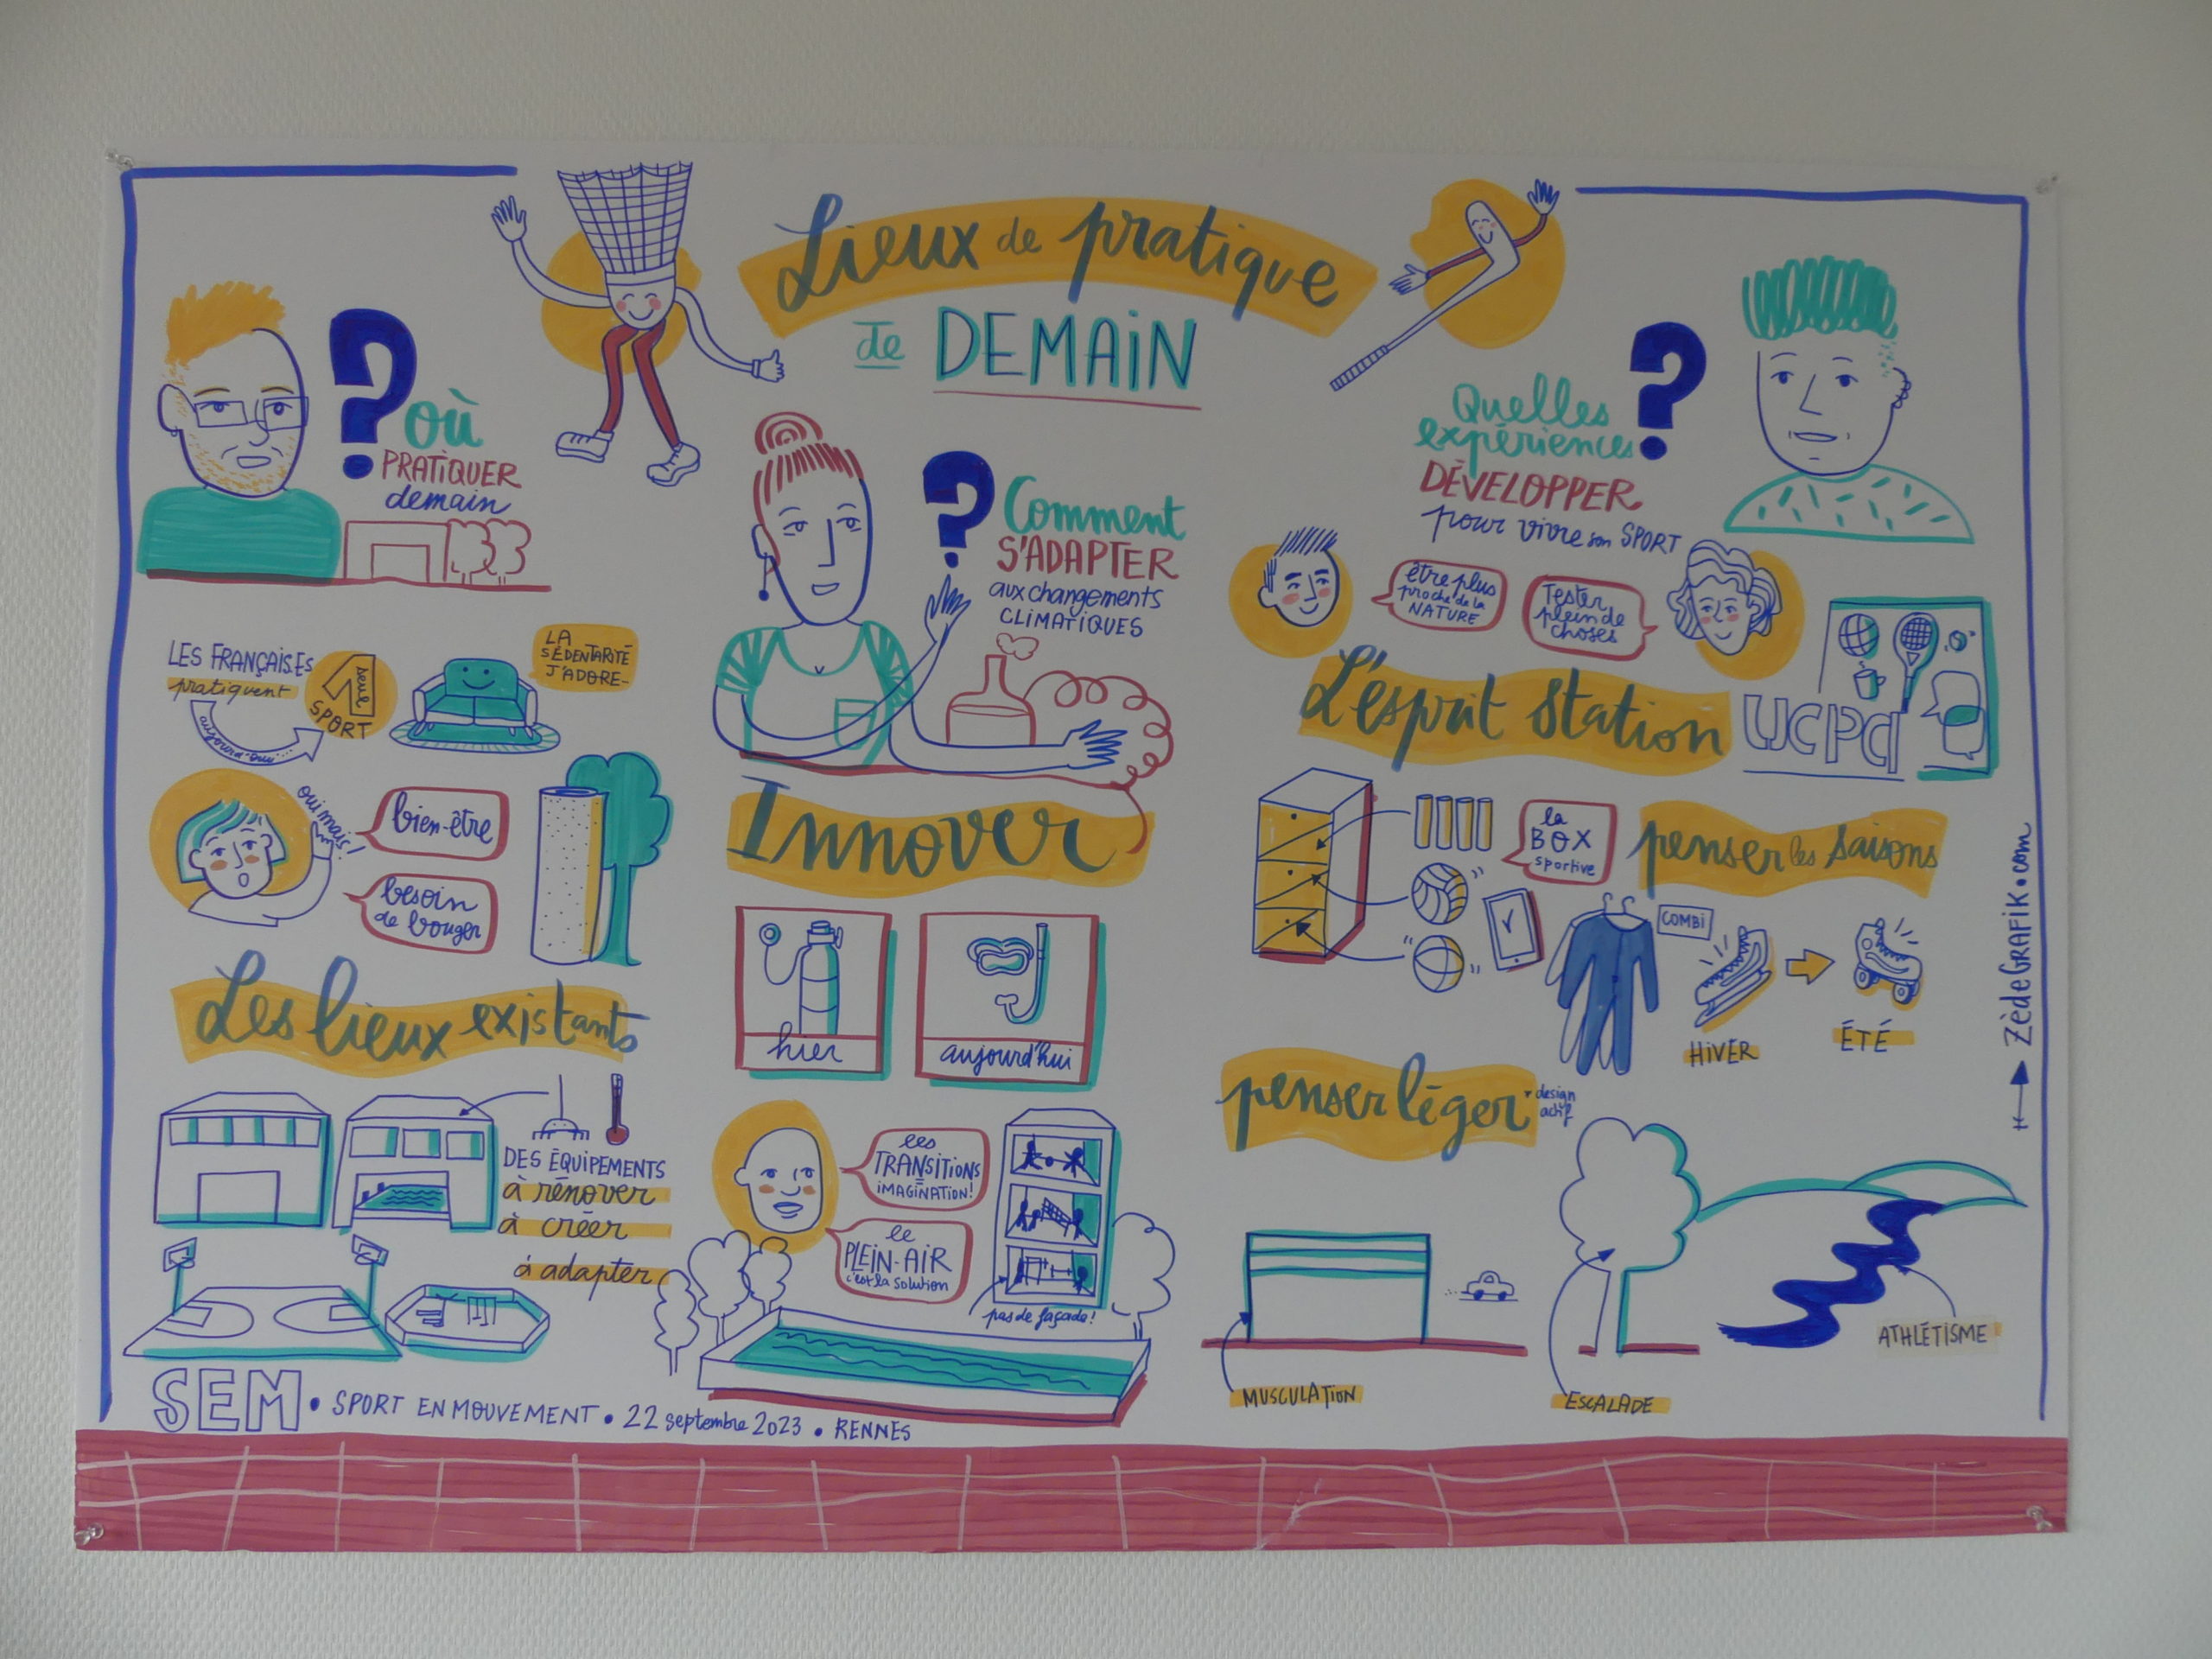 Lieux de pratique
de DEMAIN
?
où
PRATIQUER
demain
LES FRANÇAIS.ES
pratiquent
aujourd'hui
1 seul
SPORT
LA
SÉDENTARITÉ
J'ADORE-
oui mais!
bien-être
besoin
de bouger
Les lieux existants
DES ÉQUIPEMENTS
à rénover
à créer
à adapter
?
Comment
S'ADAPTER
aux changements
CLIMATIQUES
Innover
hier
aujourd'hui
les
TRANSITIONS
=
IMAGINATION!
le
PLEIN-AIR
c'est la solution
pas de façade!
?
Quelles
expériences
DÉVELOPPER
pour vivre son SPORT
être plus
proche de la
NATURE
Tester
plein de
choses
L'esprit station
UCPA
la
BOX
sportive
penser les saisons
COMBI
HIVER
ÉTÉ
penser léger
design
actif
MUSCULATION
ESCALADE
ATHLÉTISME
ZèdeGRAFIK.com
SEM • SPORT EN MOUVEMENT • 22 septembre 2023 • RENNES